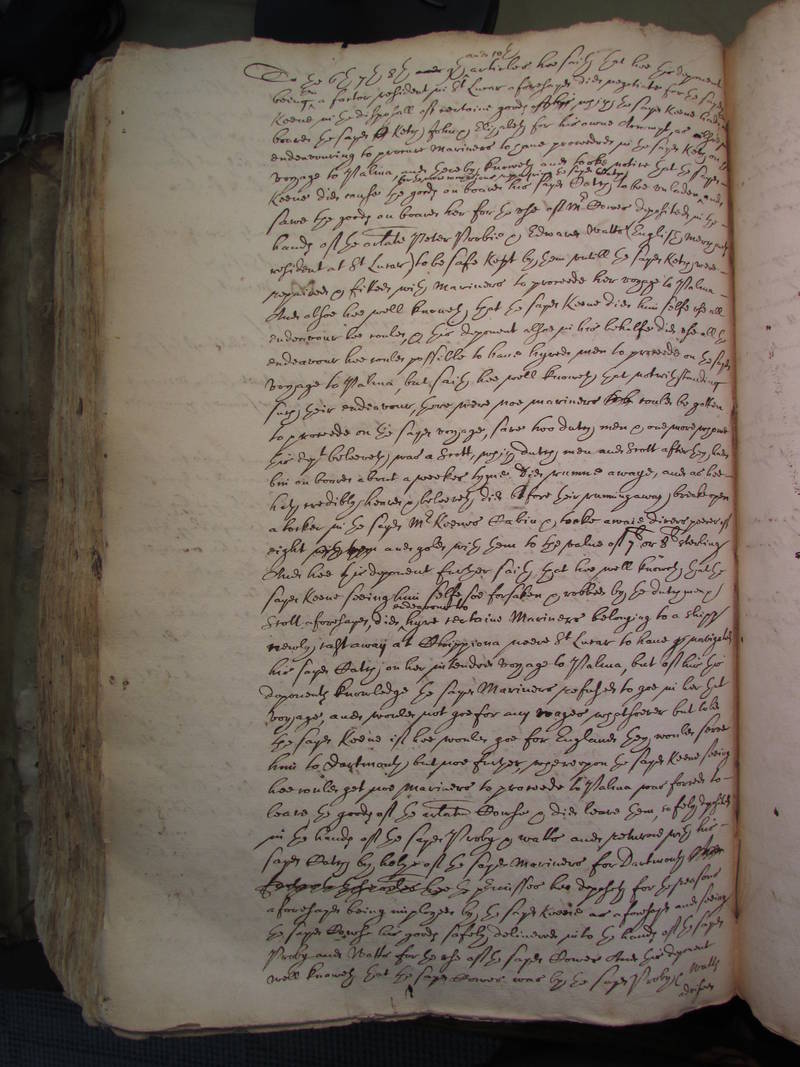 To the 6th 7th 8th and 10th articles hee saith that hee this deponent
being then a factor resident in St Lucar aforesayd did negotiate for the sayd
Keene in the disposall of certaine goods which the sayd Keene had on
board the sayd Ketch John and Elizabeth for his owne Accompt, as alsoe in
endeavouring to procure Mariners to have proceeded in the sayd Ketch on the
voyage to Palma, and thereby knoweth and tooke notice that the sayd
Keene did cause the goods on board his sayd Catch to bee unladen and
sawe the goods on board her for the use of Mr Dowse deposited in the
hands of the arlate Peter Proby and Edward Watts (English Merchants
resident at St Lucar) to be safe kept by them untill the sayd Ketch were
repaired and fitted with Mariners to proceede her voyage to Palma
And alsoe hee well knoweth that the sayd Keene did him selfe use all
endeavour hee could and this deponent alsoe in his behalfe did use all the
endeavour hee could possible to have hyred men to proceede on the sayd
voyage to Palma, but saith hee well knoweth that notwithstanding
such their endeavour, there were noe mariners to be could be gotten
to proceede on the sayd voyage, save two dutch men and one more whome
this deponent beleeveth was a Scott, which dutch men and Scott after they had
bin on board about a weekes tyme did runne away, and as hee
hath credibly heard and beleeveth did before their running away breake open
a locker in the sayd Mr Keenes Cabin and tooke away divers peeces of
eight and gold with them to the value of 7 li or 8 li sterling
And hee this deponent further saith that hee well knoweth that the
sayd Keene seeing him selfe soe forsaken and robbed by the dutch men and
Scott aforesayd, did endeavour to hyre certaine Mariners belonging to a shipp
newly cast away at Chippiona neere St Lucar to have navigated
his sayd Catch on her intended voyage to Palma, but of his this
deponents knowledge the sayd Mariners refused to goe in her that
voyage, and would not goe for any wages whatsoever but told
the sayd Keene if hee would goe for England they would serve
him to Dartmouth but noe further, whereupon the sayd Keene seeing
hee could get noe Mariners to proceede to Palma was forced to
leave the goods of the arlate Dowse and did leave them safely deposited
in the hands of the sayd Proby and Watts and returne with his
sayd Catch by helpe of the sayd Mariners for Dartmouth
the premisses hee deposeth for the reasons
aforesayd being imployed by the sayd Keene as aforesayd and seeing
the sayd Dowse his goods safely delivered into the hands of the sayd
Proby and Watts for the use of the sayd Dowse And this deponent
well knoweth that the sayd Dowse was by the sayd Proby and Watts
advised